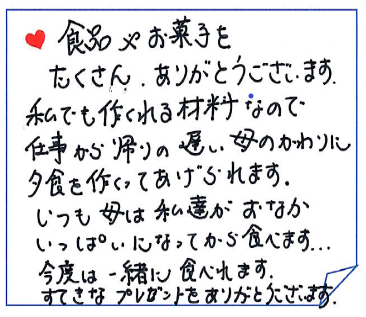 食品やお菓子を
たくさん、ありがとうございます。
私でも作くれる材料なので
仕事から帰りの遅い母のかわりに
夕食を作くってあげられます。
いつも母は私達がおなか
いっぱいになってから食べます…
今度は一緒に食べれます。
すてきなプレゼントをありがとうございます。